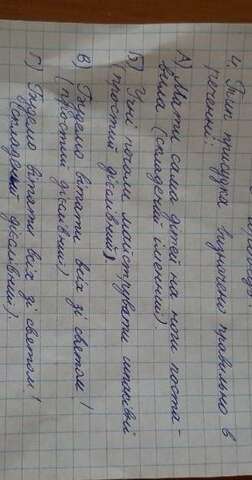 4. Тип присудка визначено правильно в
реченні:
А) Мати сама дітей на ноги поста-
вила (складений іменний)
Б) Учні почали майструвати шпаківні
простий дієслівний).
В) Будемо вітати всіх зі святом!
(простий дієслівний)
Г) Будемо вітати всіх зі святом!
(складений дієслівний).